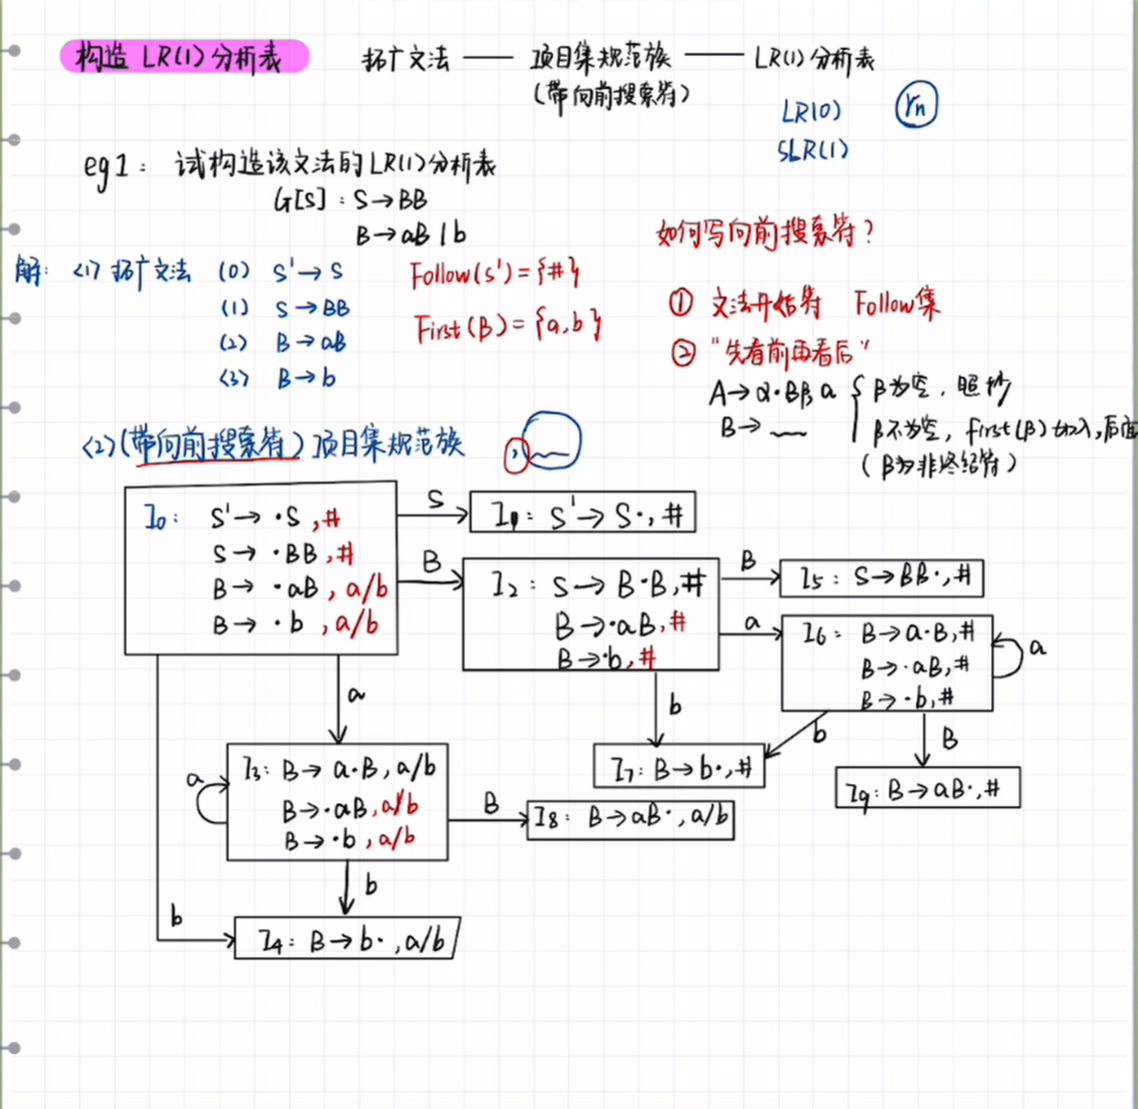 构造 LR(1) 分析表
拓广文法 —— 项目集规范族 —— LR(1) 分析表
(带向前搜索符)
LR(0) rn
SLR(1)
eg1: 试构造该文法的LR(1)分析表
G[S]: S→BB
B→aB | b
如何写向前搜索符?
解: <1> 拓广文法 (0) S'→S Follow(S')={#}
(1) S→BB
(2) B→aB First(B)={a,b}
(3) B→b
① 文法开始符 Follow集
② "先看前再看后"
A→α·Bβ, a { β为空, 照抄
B→ __ β不为空, first(β)加入,后面
(β为非终结符)
<2>(带向前搜索符)项目集规范族
,
I0: S'→·S,#
S→·BB,#
B→·aB, a/b
B→·b, a/b
S
I1: S'→S·,#
B
I2: S→B·B,#
B→·aB,#
B→·b,#
B
I5: S→BB·,#
a
I6: B→a·B,#
B→·aB,#
B→·b,#
a
a
b
b
B
I7: B→b·,#
I9: B→aB·,#
a
I3: B→a·B, a/b
B→·aB, a/b
B→·b, a/b
B
I8: B→aB·, a/b
b
b
I4: B→b·, a/b